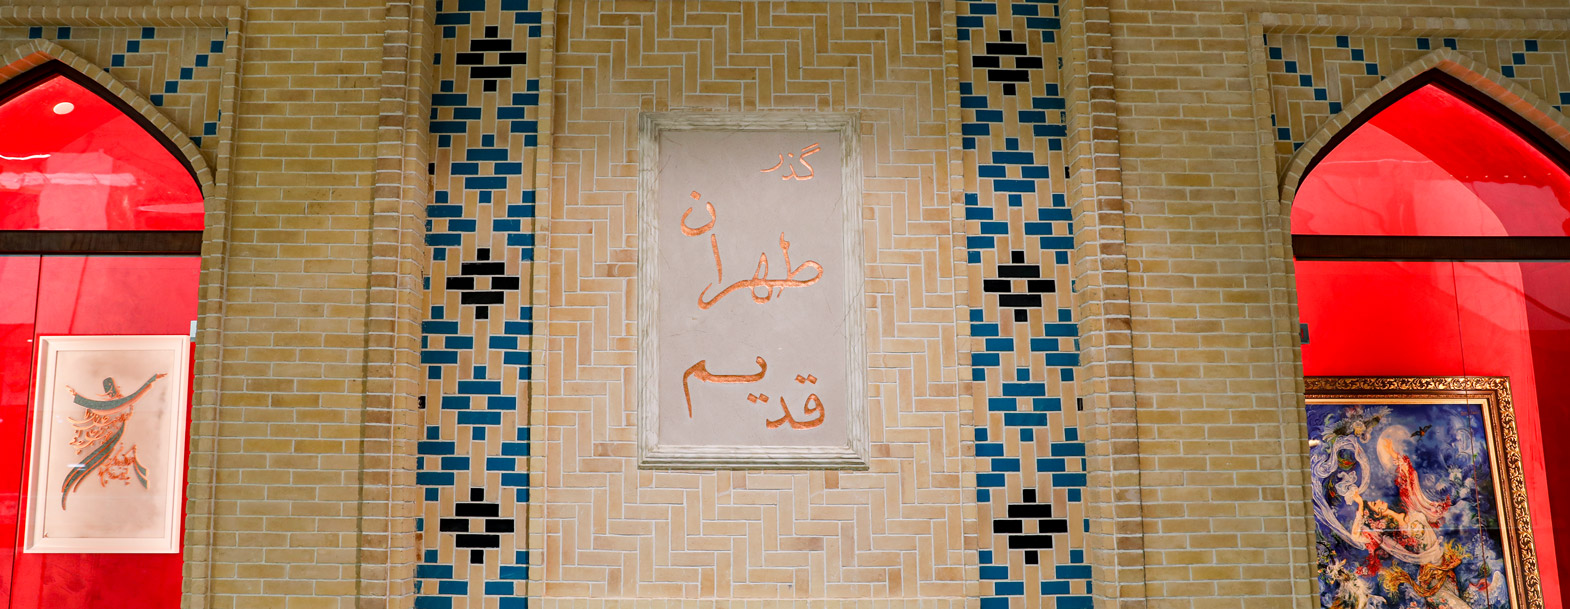 گذر
طهران
قدیم